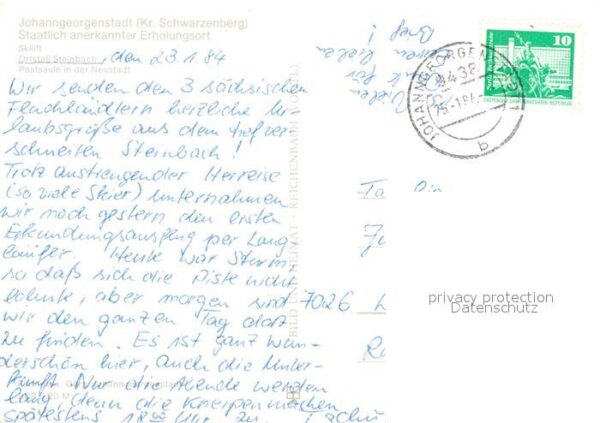 Johanngeorgenstadt (Kr. Schwarzenberg)
Staatlich anerkannter Erholungsort
Skilift
Ortsteil Steinbach
Postsäule in der Neustadt
, den 23.1.84
Wir senden den 3 sächsischen
Flachländlern herzliche Ur-
laubsgrüße aus dem tiefver-
schneiten Steinbach!
Trotz anstrengender Herreise
(so viele Skier) unternahmen
wir noch gestern den ersten
Erkundungsausflug per Lang-
läufer. Heute war Sturm,
so daß sich die Piste nicht
lohnte, aber morgen sind
wir den ganzen Tag dort
zu finden. Es ist ganz wun-
derschön hier, auch die Unter-
kunft. Nur die Abende werden
lang, denn die Kneipen machen
spätestens 18 00 Uhr zu. Tschü
Vielen
Dank für
lieben
Brief!
BILD UND HEIMAT REICHENBACH
JOHANNGEORGENSTADT 1
9438
b
10
DEUTSCHE DEMOKRATISCHE REPUBLIK
7026
privacy protection
Datenschutz